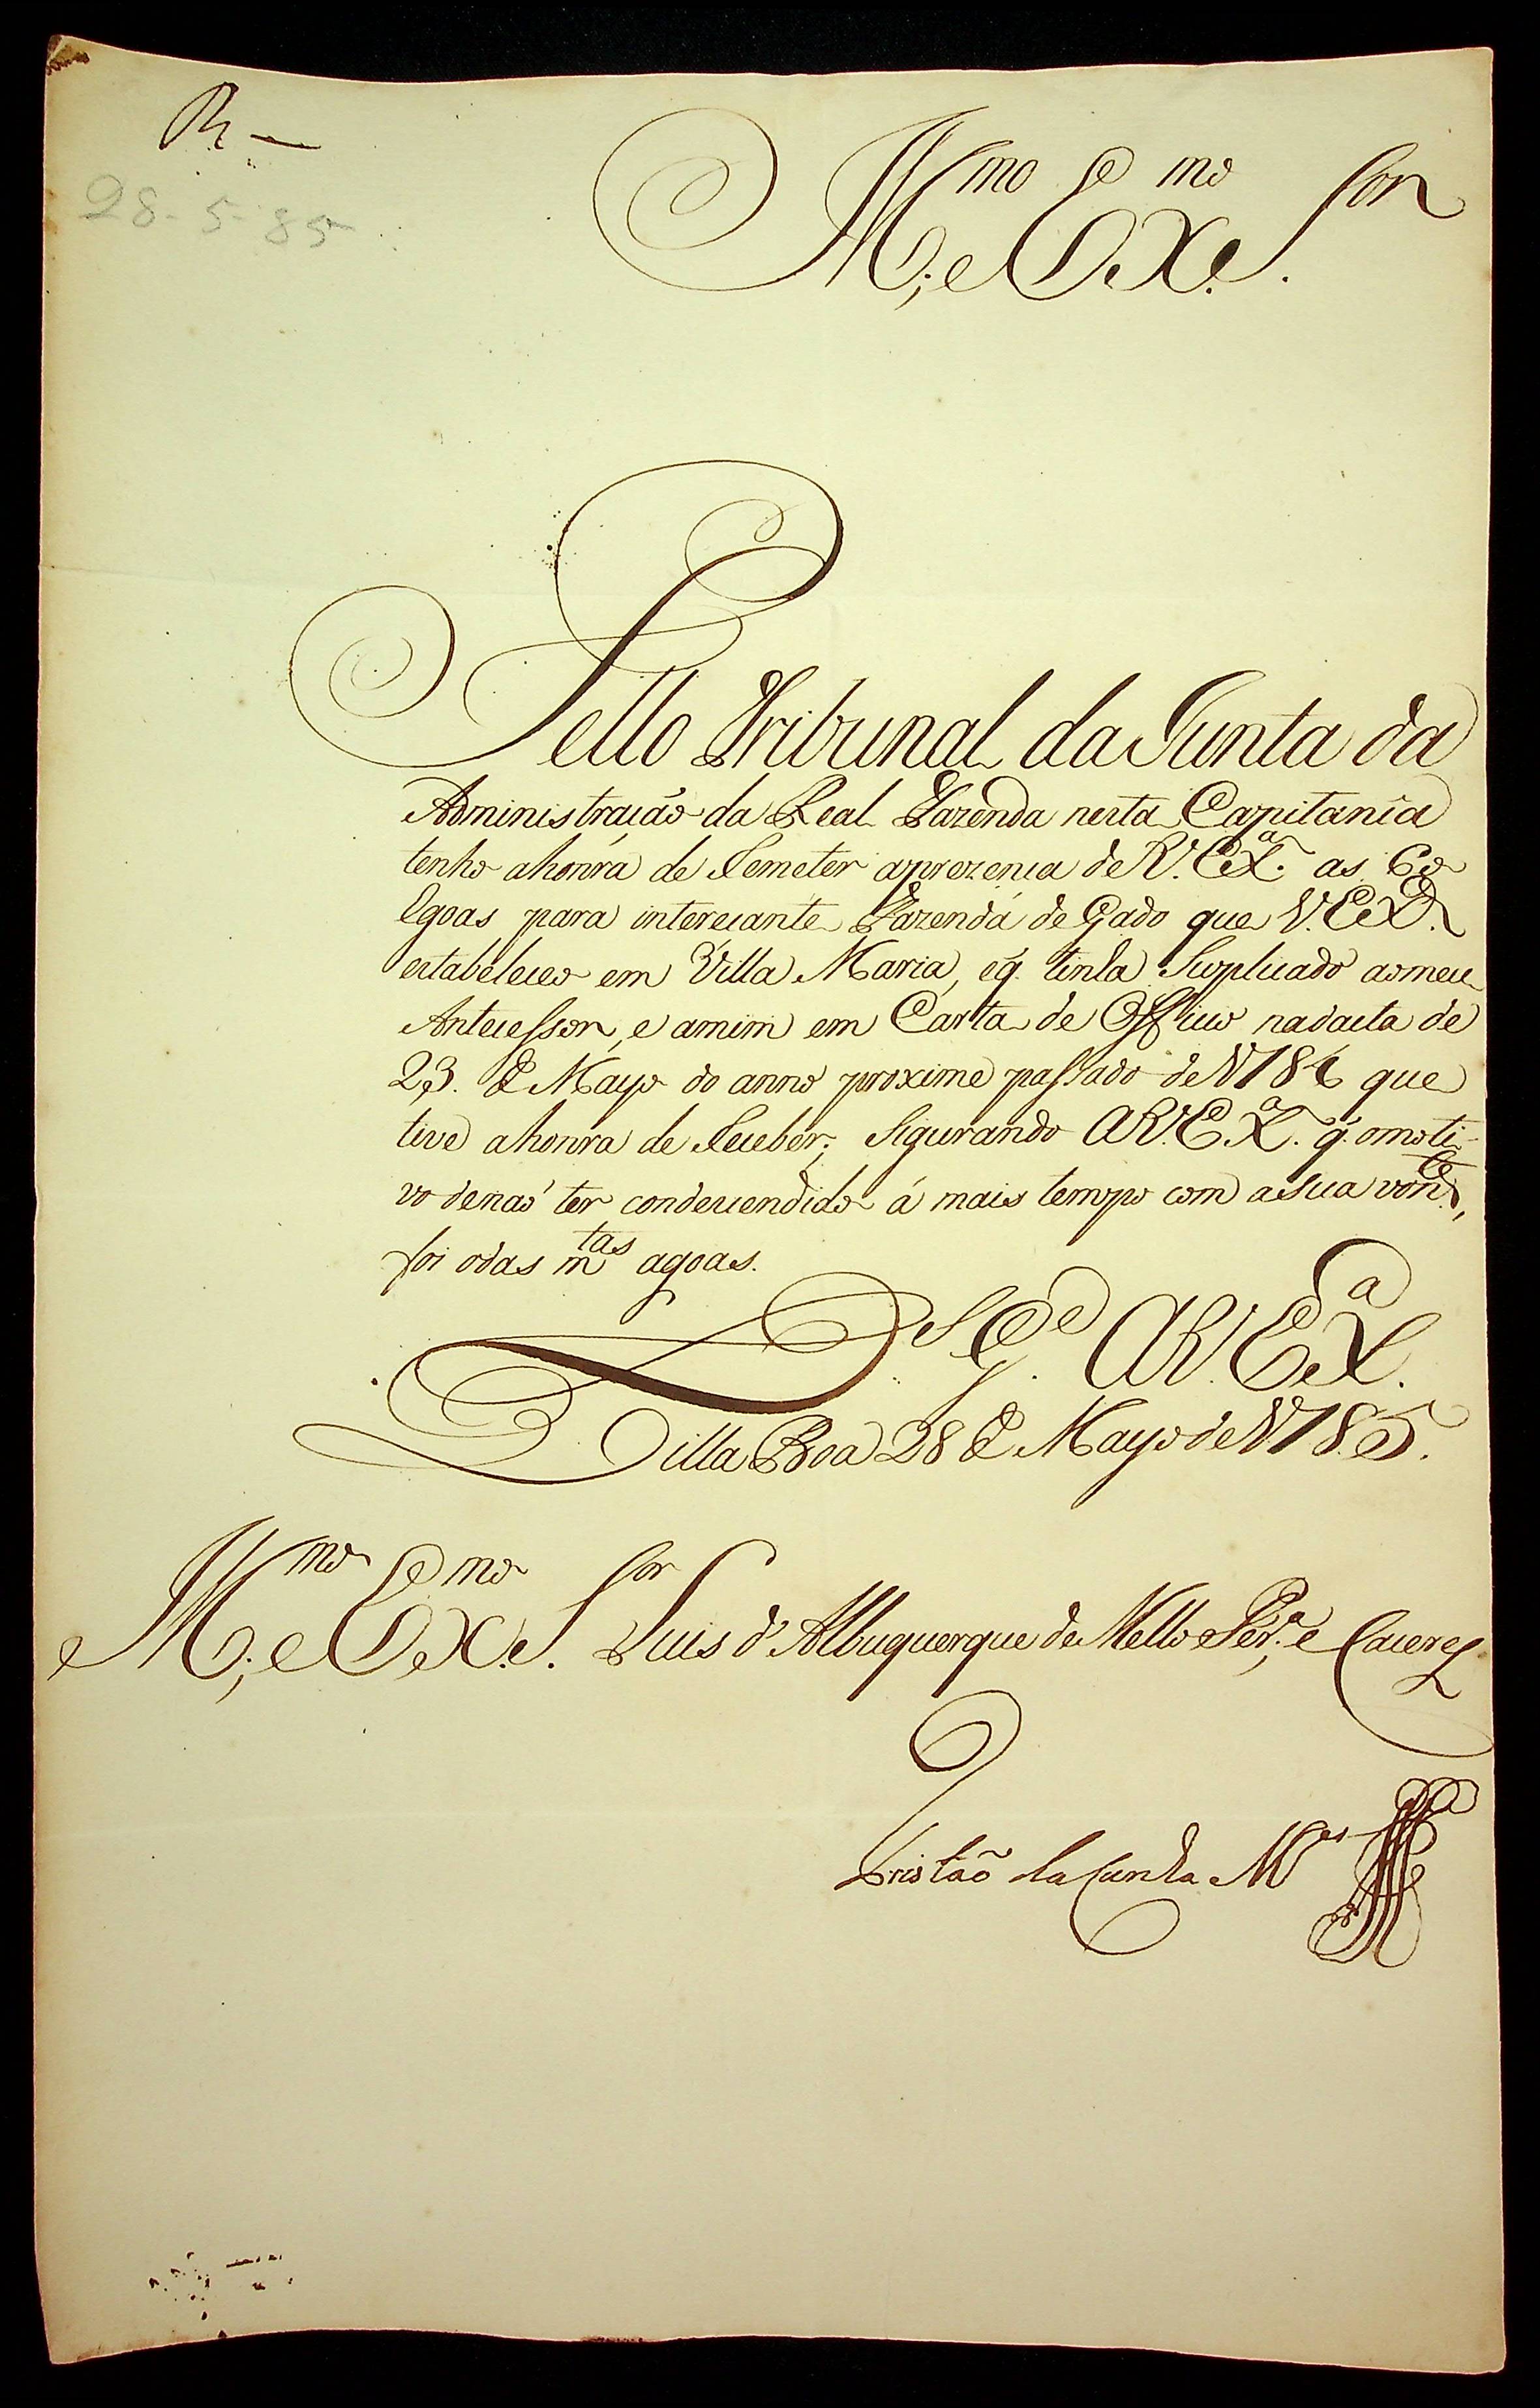 R —
28-5-85
Ill.mo e Ex.mo S.or
Pello Tribunal da Junta da
Administração da Real Fazenda nesta Capitania
tenho ahonra de Remeter aprezença de V. Ex.a as 60
Egoas para intereçante Fazenda de Gado que V. Ex.a
estabeleceo em Villa Maria, eq̃ tinha Suplicado aomeu
Antecessor, e amim em Carta de Officio nadacta de
23. de Mayo do anno proxime passado de 1784 que
tive ahonra de Receber; Sigurando AV. Ex.a q̃. omoti-
vo denaõ ter condecendido á mais tempo com asua von.de,
foi odas m.tas agoas.
D.s G.e AV. Ex.a
Villa Boa 28 de Mayo de 1785.
Ill.mo e Ex.mo S.or Luis d'Albuquerque de Mello Per.a e Caceres
Tristaõ da Cunha M.es